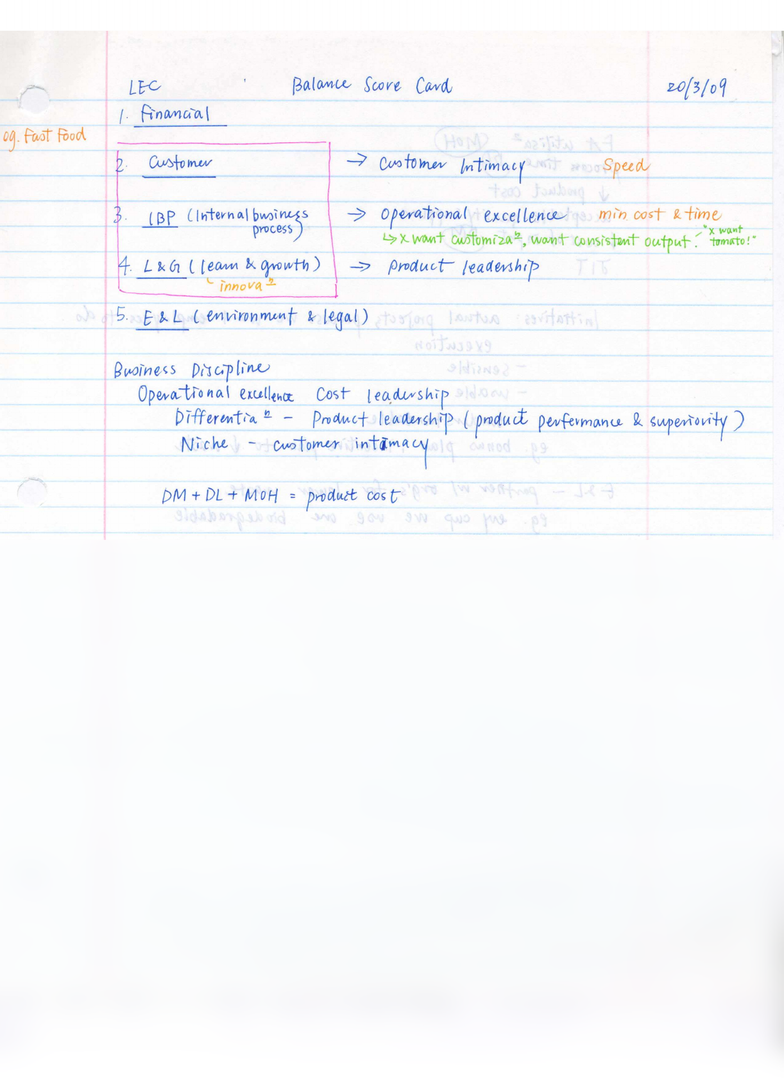 LEC Balance Score Card 20/3/09
1. Financial
eg. Fast Food
2. Customer → Customer Intimacy Speed
3. IBP (Internal business process) → Operational excellence min cost & time
↳ x want customizaⁿ, want consistent output. "x want tomato!"
4. L & G (learn & growth) → Product leadership
innovaⁿ
5. E & L (environment & legal)
Business Discipline
Operational excellence Cost leadership
Differentiaⁿ – Product leadership (product performance & superiority)
Niche – customer intimacy
DM + DL + MOH = product cost